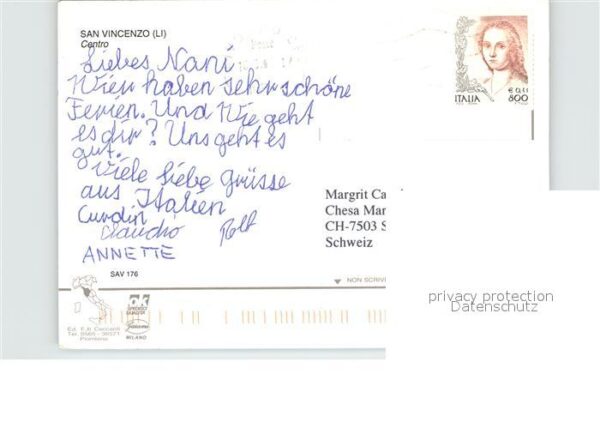 SAN VINCENZO (LI)
Centro
Liebes Nani
Wier haben sehr schöne
Ferien. Und Wie geht
es dir? Uns geht es
gut.
Viele liebe Grüsse
aus Italien
Curdin
Claudio Rolf
ANNETTE
SAV 176
ITALIA 800
€ 0,41
Margrit Ca
Chesa Mar
CH-7503 S
Schweiz
NON SCRIVE
privacy protection
Datenschutz
ok
MILANO
Piombino